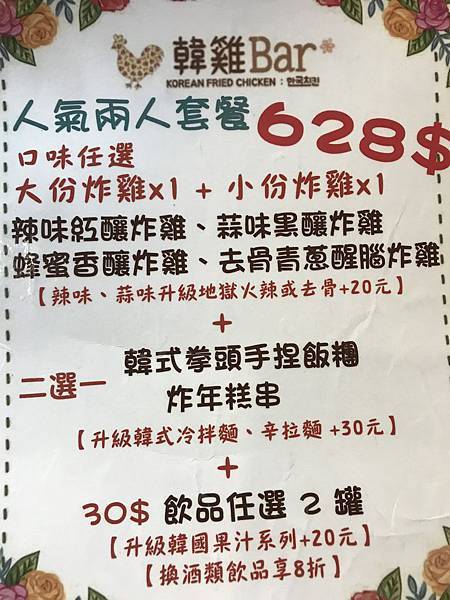 韓雞Bar
KOREAN FRIED CHICKEN : 한국치킨
人氣兩人套餐 628$
口味任選
大份炸雞x1 + 小份炸雞x1
辣味紅釀炸雞、蒜味黑釀炸雞
蜂蜜香釀炸雞、去骨青蔥醒腦炸雞
【辣味、蒜味升級地獄火辣或去骨+20元】
+
二選一
韓式拳頭手捏飯糰
炸年糕串
【升級韓式冷拌麵、辛拉麵 +30元】
+
30$ 飲品任選 2 罐
【升級韓國果汁系列+20元】
【換酒類飲品享8折】